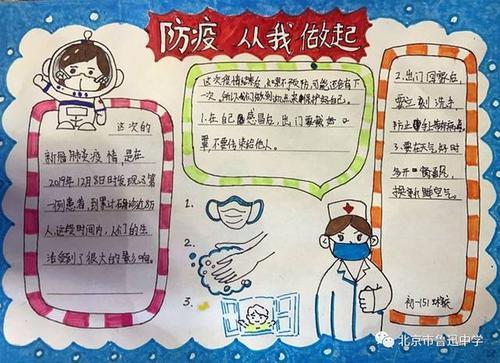 防疫 从我做起
这次的
新冠肺炎疫情，是在
2019年12月8日时发现了第
一例患者，到累计确诊近8万
人，这段时间内，人们的生
活受到了很大的影响。
这次疫情结束后，如果不预防，可能还会有下
一次，所以我们做到几点来保护好自己。
1.在自己感冒后，出门要戴口
罩，不要传染给他人。
2.出门回家后，
要立刻洗手，
防止
3.要在天气好时
多开窗通风，
换新鲜空气。
1.
2.
3.
初一151
北京市鲁迅中学